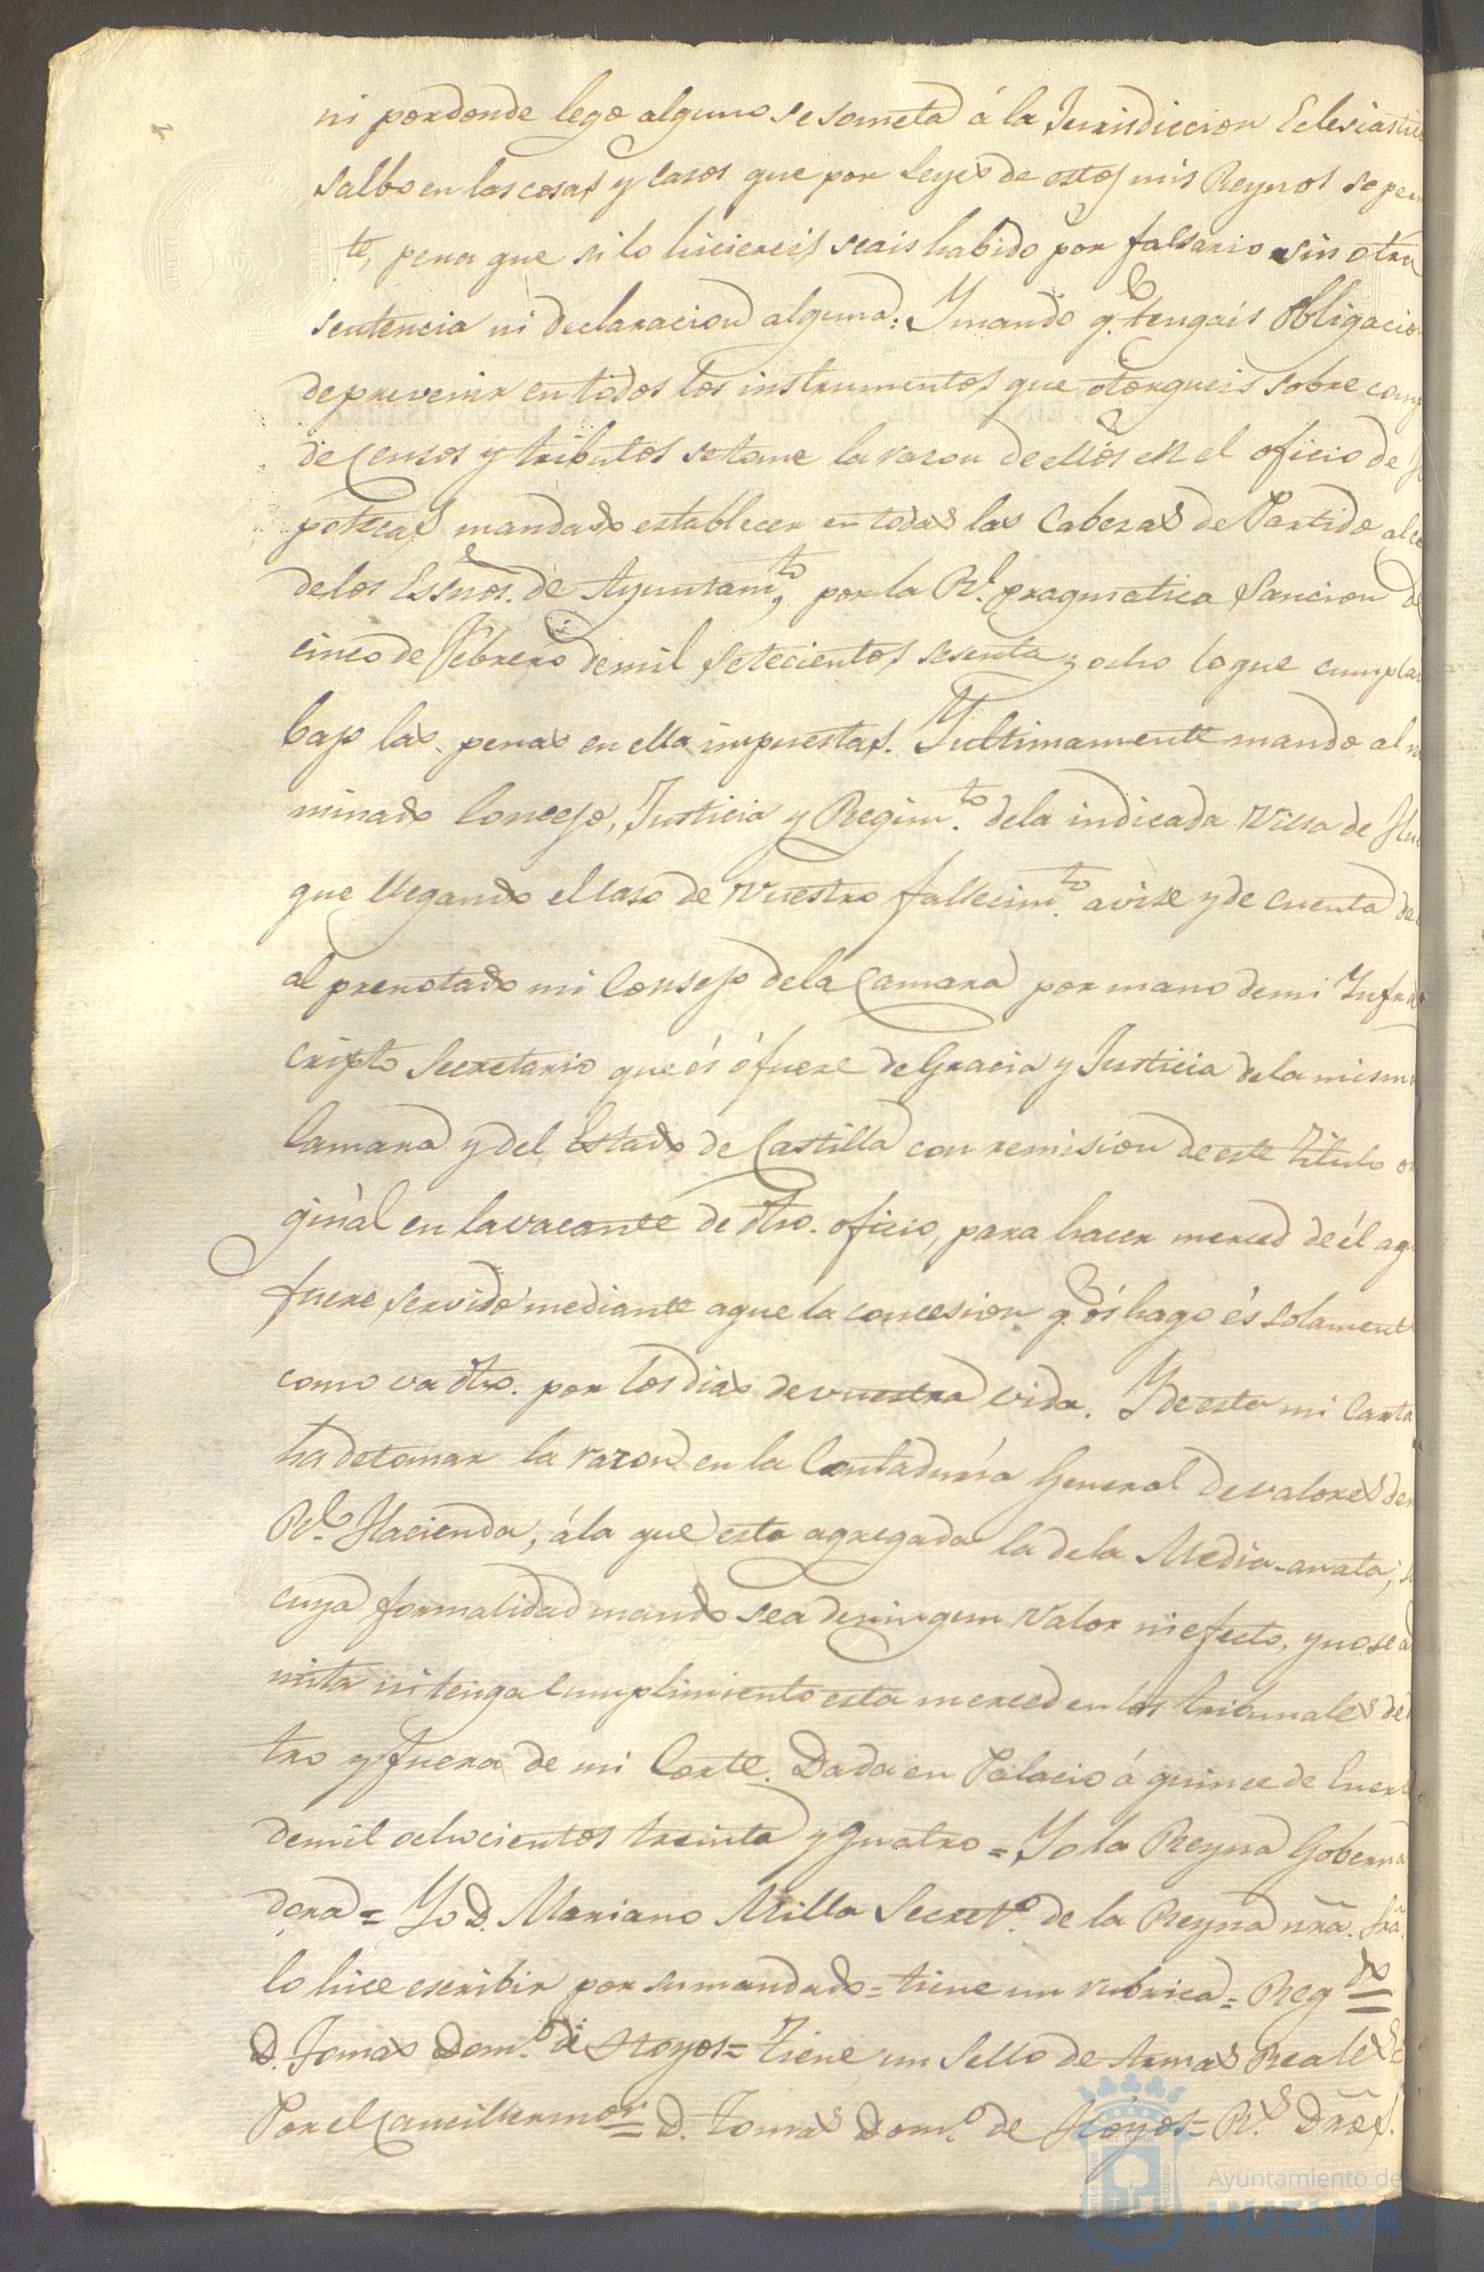 ni por donde lego alguno se someta á la Jurisdiccion Eclesiastic
salbo en las cosas y casos que por Leyes de estos mis Reynos se per
te, pena que si lo hiciereis seais habido por falsario sin otra
sentencia ni declaracion alguna: Y mando q.e tengais obligacion
de prevenir en todos los instrumentos que otorgueis sobre comp
de Censos y tributos se tome la razon de ellos en el oficio de H
potecas mandado establecer en todas las Cabezas de Partido al ca
de los Essnos. de Ayuntam.to por la Rl. pragmatica Sancion de
cinco de Febrero de mil setecientos sesenta y ocho lo que cumplai
bajo las penas en ella impuestas. Y ultimamente mando al no
minado Concejo, Justicia y Regim.to de la indicada Villa de Hue
que llegando el caso de vuestro fallecim.to avise y de cuenta de
al prenotado mi Consejo de la Camara por mano de mi Infra
cripto Secretario que és ó fuere de Gracia y Justicia de la misma
Camara y del Estado de Castilla con remision de este titulo o
ginàl en la vacante de dho. oficio, para hacer merced de él a q
fuere servido mediante a que la concesion q.e ós hago és solament
como va dho. por los dias de vuestra vida. Y de esta mi Carta
ha de tomar la razon en la Contaduría General de valores de
Rl. Hacienda, á la que esta agregada la de la Media-anata, s
cuya formalidad mando sea de ningun valor ni efecto, y no se ad
mita ni tenga cumplimiento esta merced en los tribunales de
tro y fuera de mi Corte. Dada en Palacio á quince de Enero
de mil ochocientos treinta y quatro = Yo la Reyna Goberna
dora = Yo D. Mariano Milla Secret.o de la Reyna nrã. Srã.
lo hice escribir por su mandado = tiene un rubrica = Reg.do =
D. Tomas Dom.o de Hoyos = Tiene un Sello de Armas Reales =
Por el Canciller mor = D. Tomas Dom.o de Hoyos = R.s Drõs.
Ayuntamiento de
HUELVA